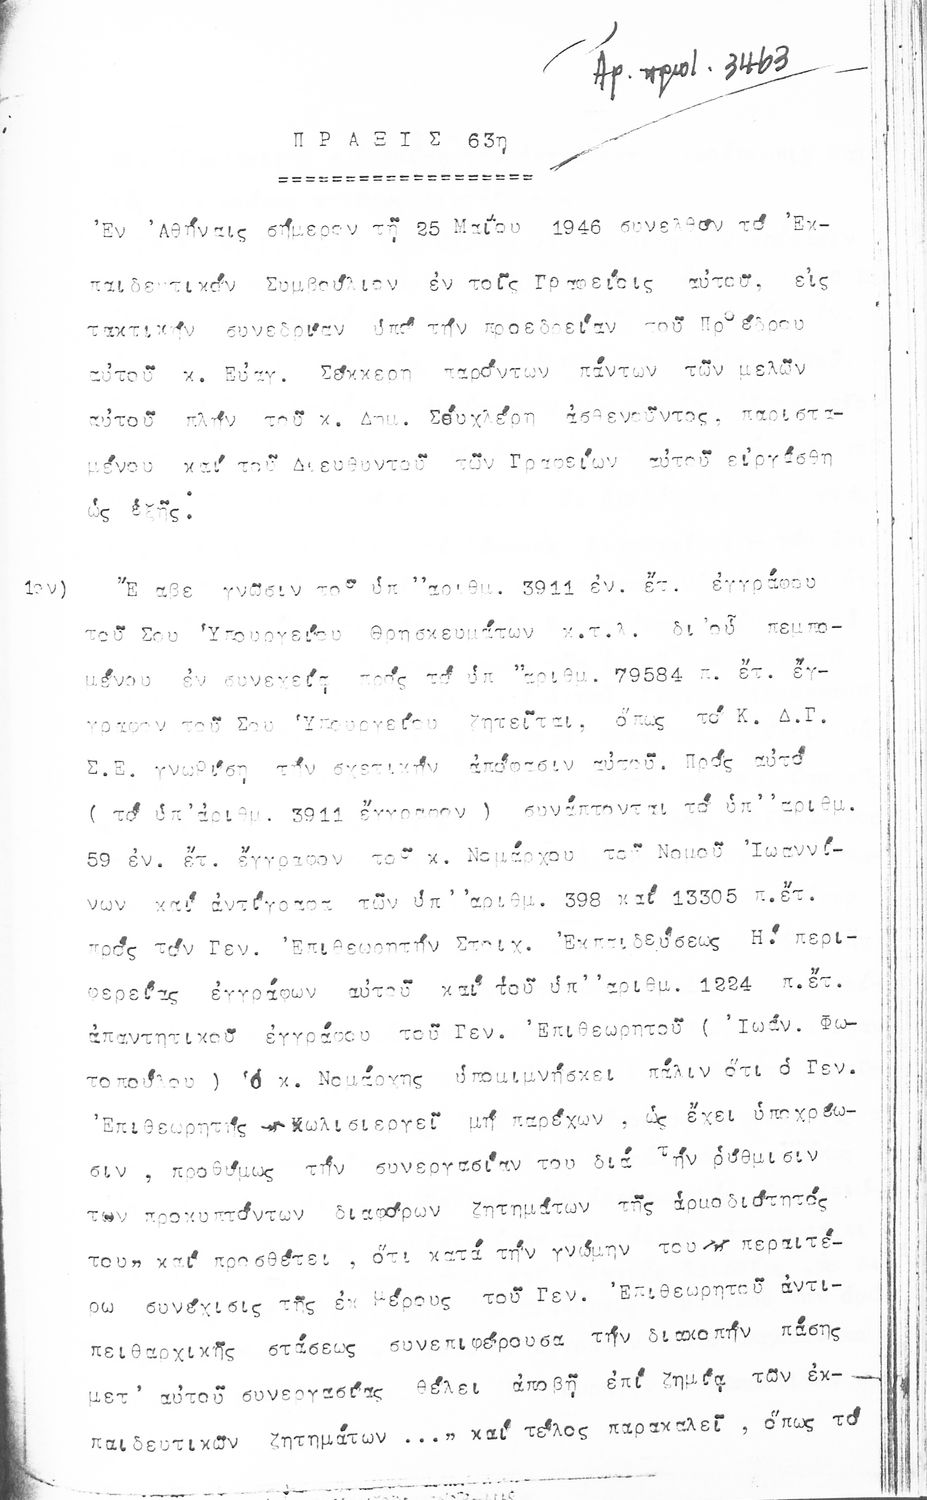 Αρ. πρωτ. 3463
Π Ρ Α Ξ Ι Σ 63η
===================
Ἐν Ἀθήναις σήμερον τῇ 25 Μαΐου 1946 συνελθόν τό Ἐκ-
παιδευτικόν Συμβούλιον ἐν τοῖς Γραφείοις αὐτοῦ, εἰς
τακτικήν συνεδρίαν ὑπό τήν προεδρείαν τοῦ Προέδρου
αὐτοῦ κ. Εὐαγ. Σέκκερη παρόντων πάντων τῶν μελῶν
αὐτοῦ πλήν τοῦ κ. Δημ. Σέυχλέρη ἀσθενοῦντος, παριστα-
μένου καί τοῦ Διευθυντοῦ τῶν Γραφείων αὐτοῦ εἰργάσθη
ὡς ἑξῆς:
1ον) Ἔ αβε γνῶσιν τοῦ ὑπ ''αριθμ. 3911 ἐν. ἔτ. ἐγγράφου
τοῦ Σου Ὑπουργείου Θρησκευμάτων κ.τ.λ. δι'οὗ πεμπο-
μένου ἐν συνεχείᾳ πρός τό ὑπ ''αριθμ. 79584 π. ἔτ. ἔγ-
γραφον τοῦ Σου Ὑπουργείου ζητεῖται, ὅπως τό Κ. Δ.Γ.
Σ.Ε. γνωρίση τήν σχετικήν ἀπόφασιν αὐτοῦ. Πρός αὐτό
( τό ὑπ'ἀριθμ. 3911 ἔγγραφον ) συνάπτονται τό ὑπ''αριθμ.
59 ἐν. ἔτ. ἔγγραφον τοῦ κ. Νομάρχου τοῦ Νομοῦ Ἰωαννί-
νων καί ἀντίγραφα τῶν ὑπ''αριθμ. 398 καί 13305 π.ἔτ.
πρός τόν Γεν. Ἐπιθεωρητήν Στοιχ. Ἐκπαιδεύσεως Η! περι-
φερείας ἐγγράφων αὐτοῦ καί τοῦ ὑπ''αριθμ. 1224 π.ἔτ.
ἀπαντητικοῦ ἐγγράφου τοῦ Γεν. Ἐπιθεωρητοῦ ( Ἰωάν. Φω-
τοπούλου ) Ὁ κ. Νομάρχης ὑπομιμνήσκει πάλιν ὅτι ὁ Γεν.
Ἐπιθεωρητής « Κωλισιεργεῖ μή παρέχων , ὡς ἔχει ὑποχρέω-
σιν , προθύμως τήν συνεργασίαν του διά τήν ρύθμισιν
των προκυπτόντων διαφόρων ζητημάτων τῆς ἁρμοδιότητός
του» καί προσθέτει , ὅτι κατά τήν γνώμην του « περαιτέ-
ρω συνέχισις τῆς ἐκ μέρους τοῦ Γεν. Ἐπιθεωρητοῦ ἀντι-
πειθαρχικῆς στάσεως συνεπιφέρουσα τήν διακοπήν πάσης
μετ' αὐτοῦ συνεργασίας θέλει ἀποβῆ ἐπί ζημίᾳ τῶν ἐκ-
παιδευτικῶν ζητημάτων ...» καί τέλος παρακαλεῖ , ὅπως τό